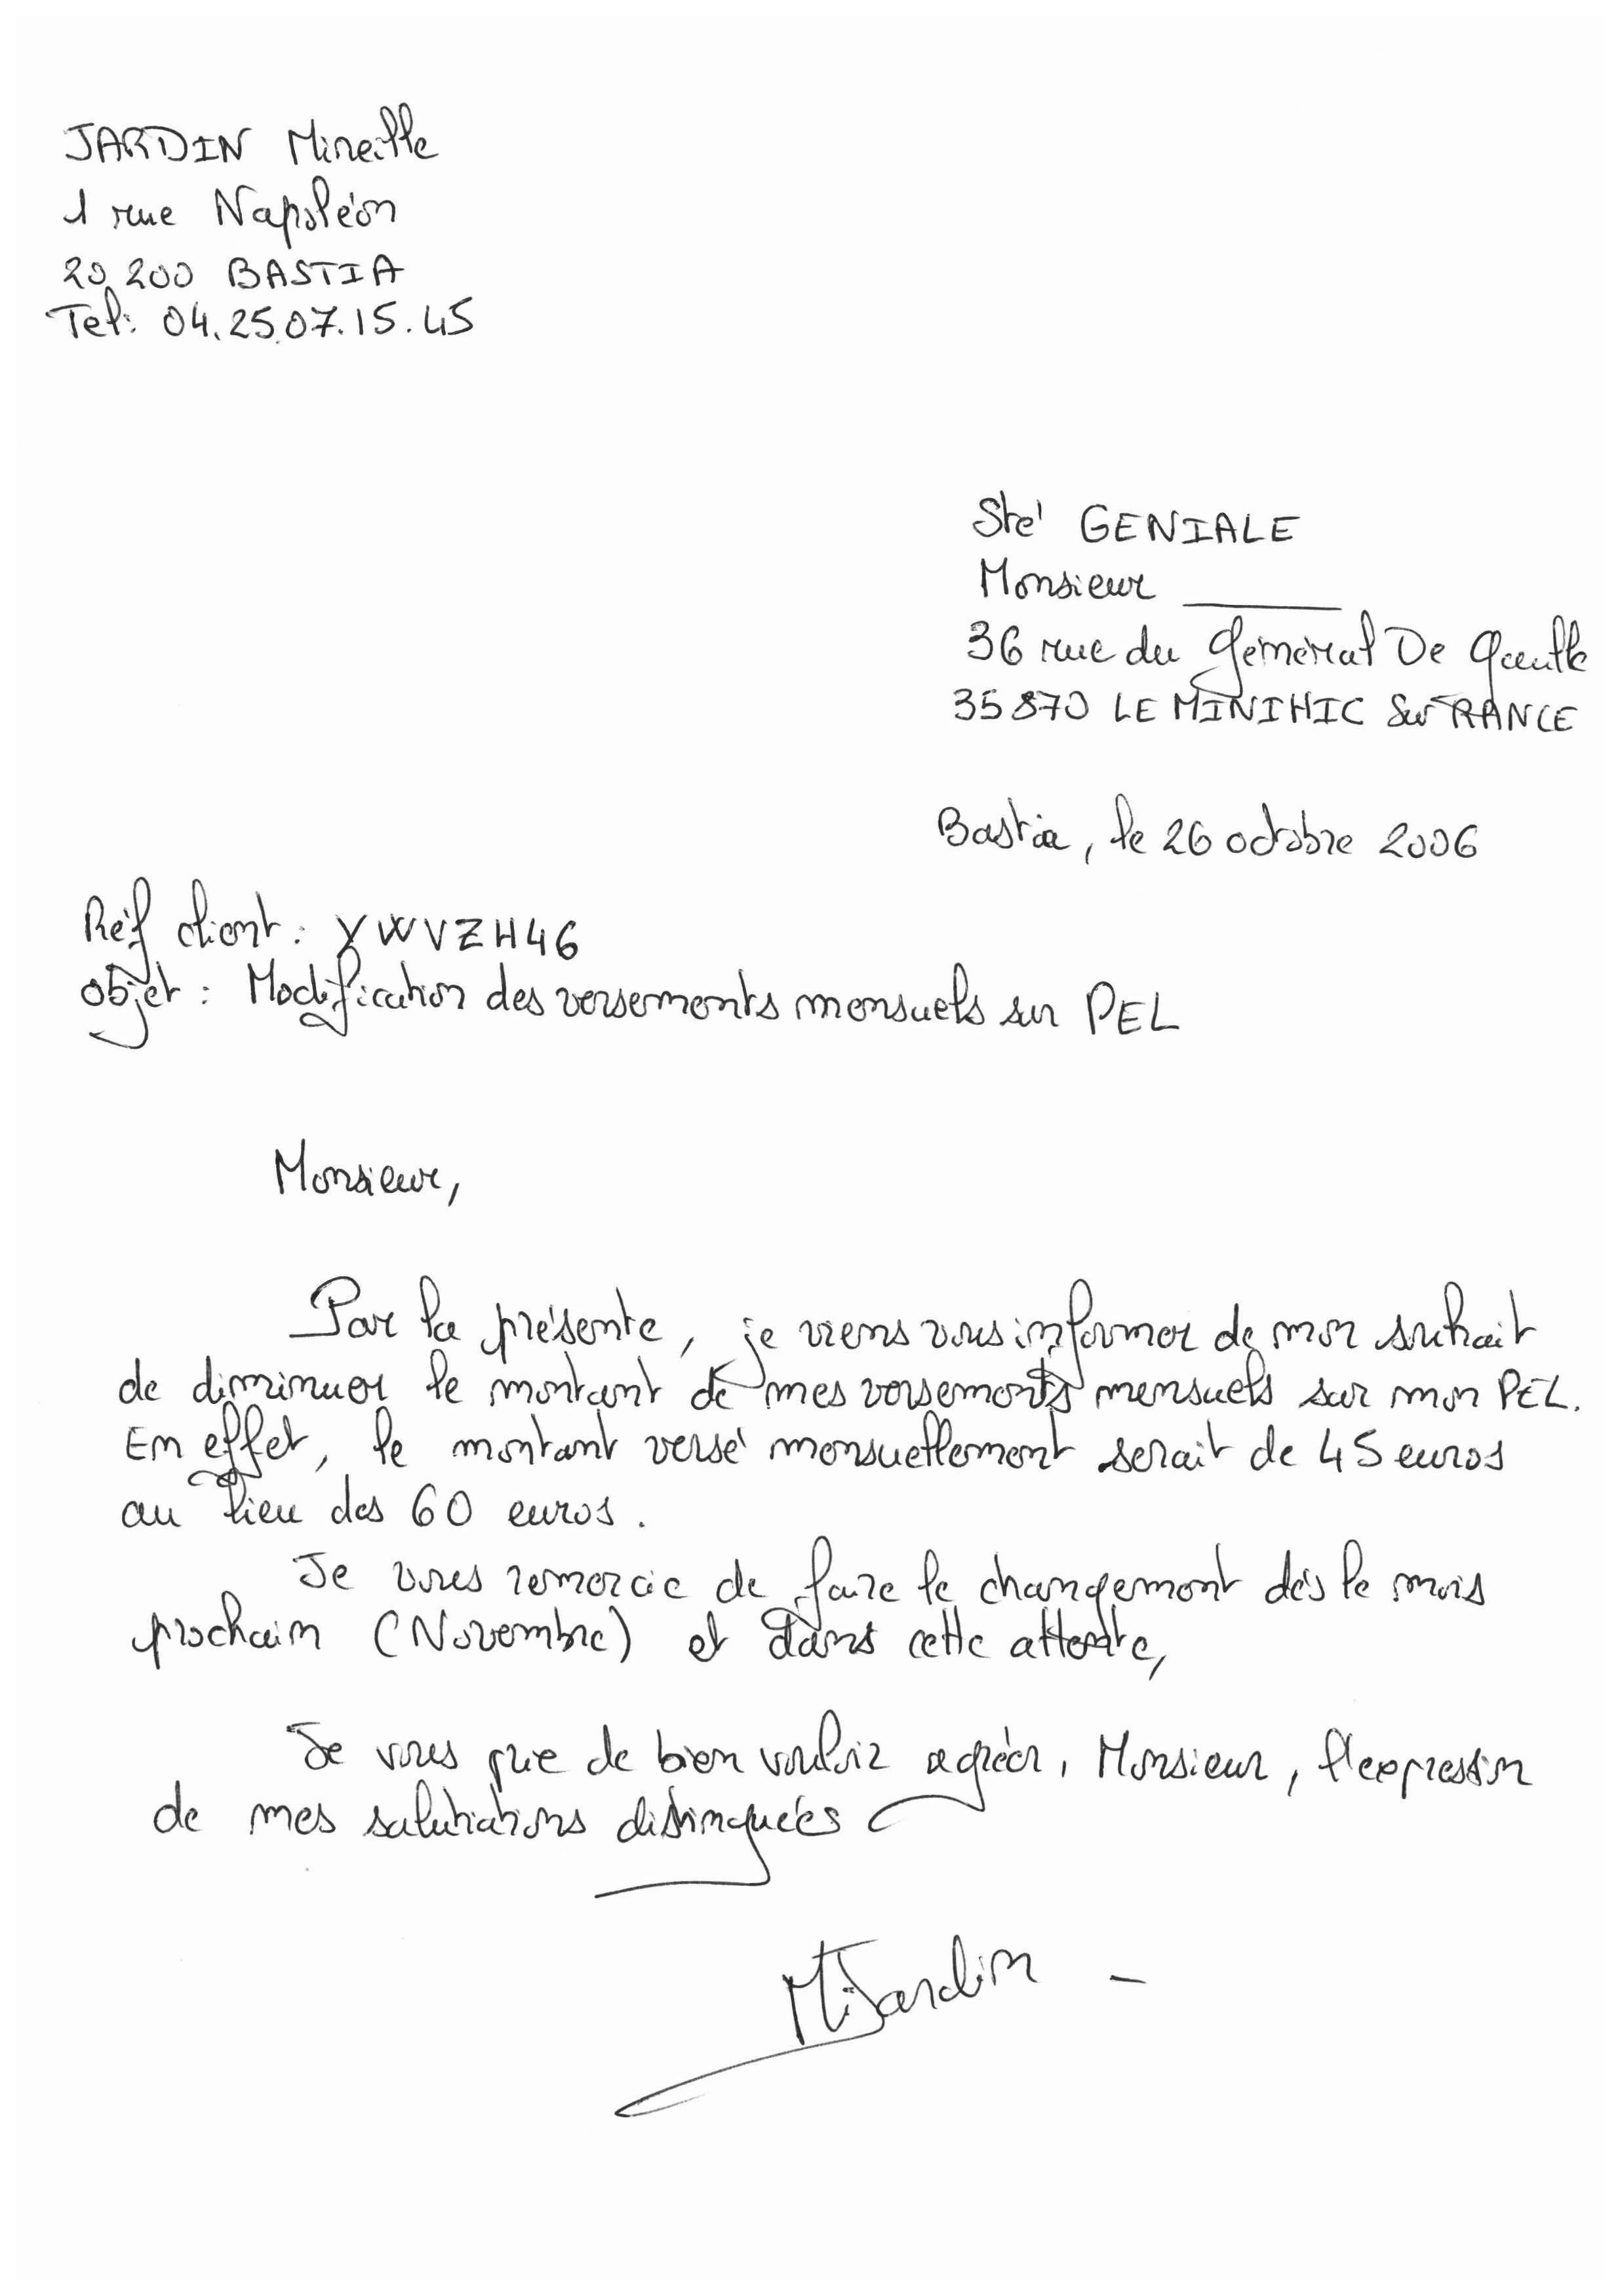 JARDIN Mireille
1 rue Napoléon
20 200 BASTIA
Tel: 04.25.07.15.45
Sté GENIALE
Monsieur ______
36 rue du Général De Gaulle
35870 LE MINIHIC Sur RANCE
Bastia, le 26 octobre 2006
Réf client : YWVZH46
objet : Modification des versements mensuels sur PEL
Monsieur,
Par la présente, je viens vous informer de mon souhait
de diminuer le montant de mes versements mensuels sur mon PEL.
En effet, le montant versé mensuellement serait de 45 euros
au lieu des 60 euros.
Je vous remercie de faire le changement dès le mois
prochain (Novembre) et dans cette attente,
Je vous prie de bien vouloir agréer, Monsieur, l'expression
de mes salutations distinguées
M.Jardin -